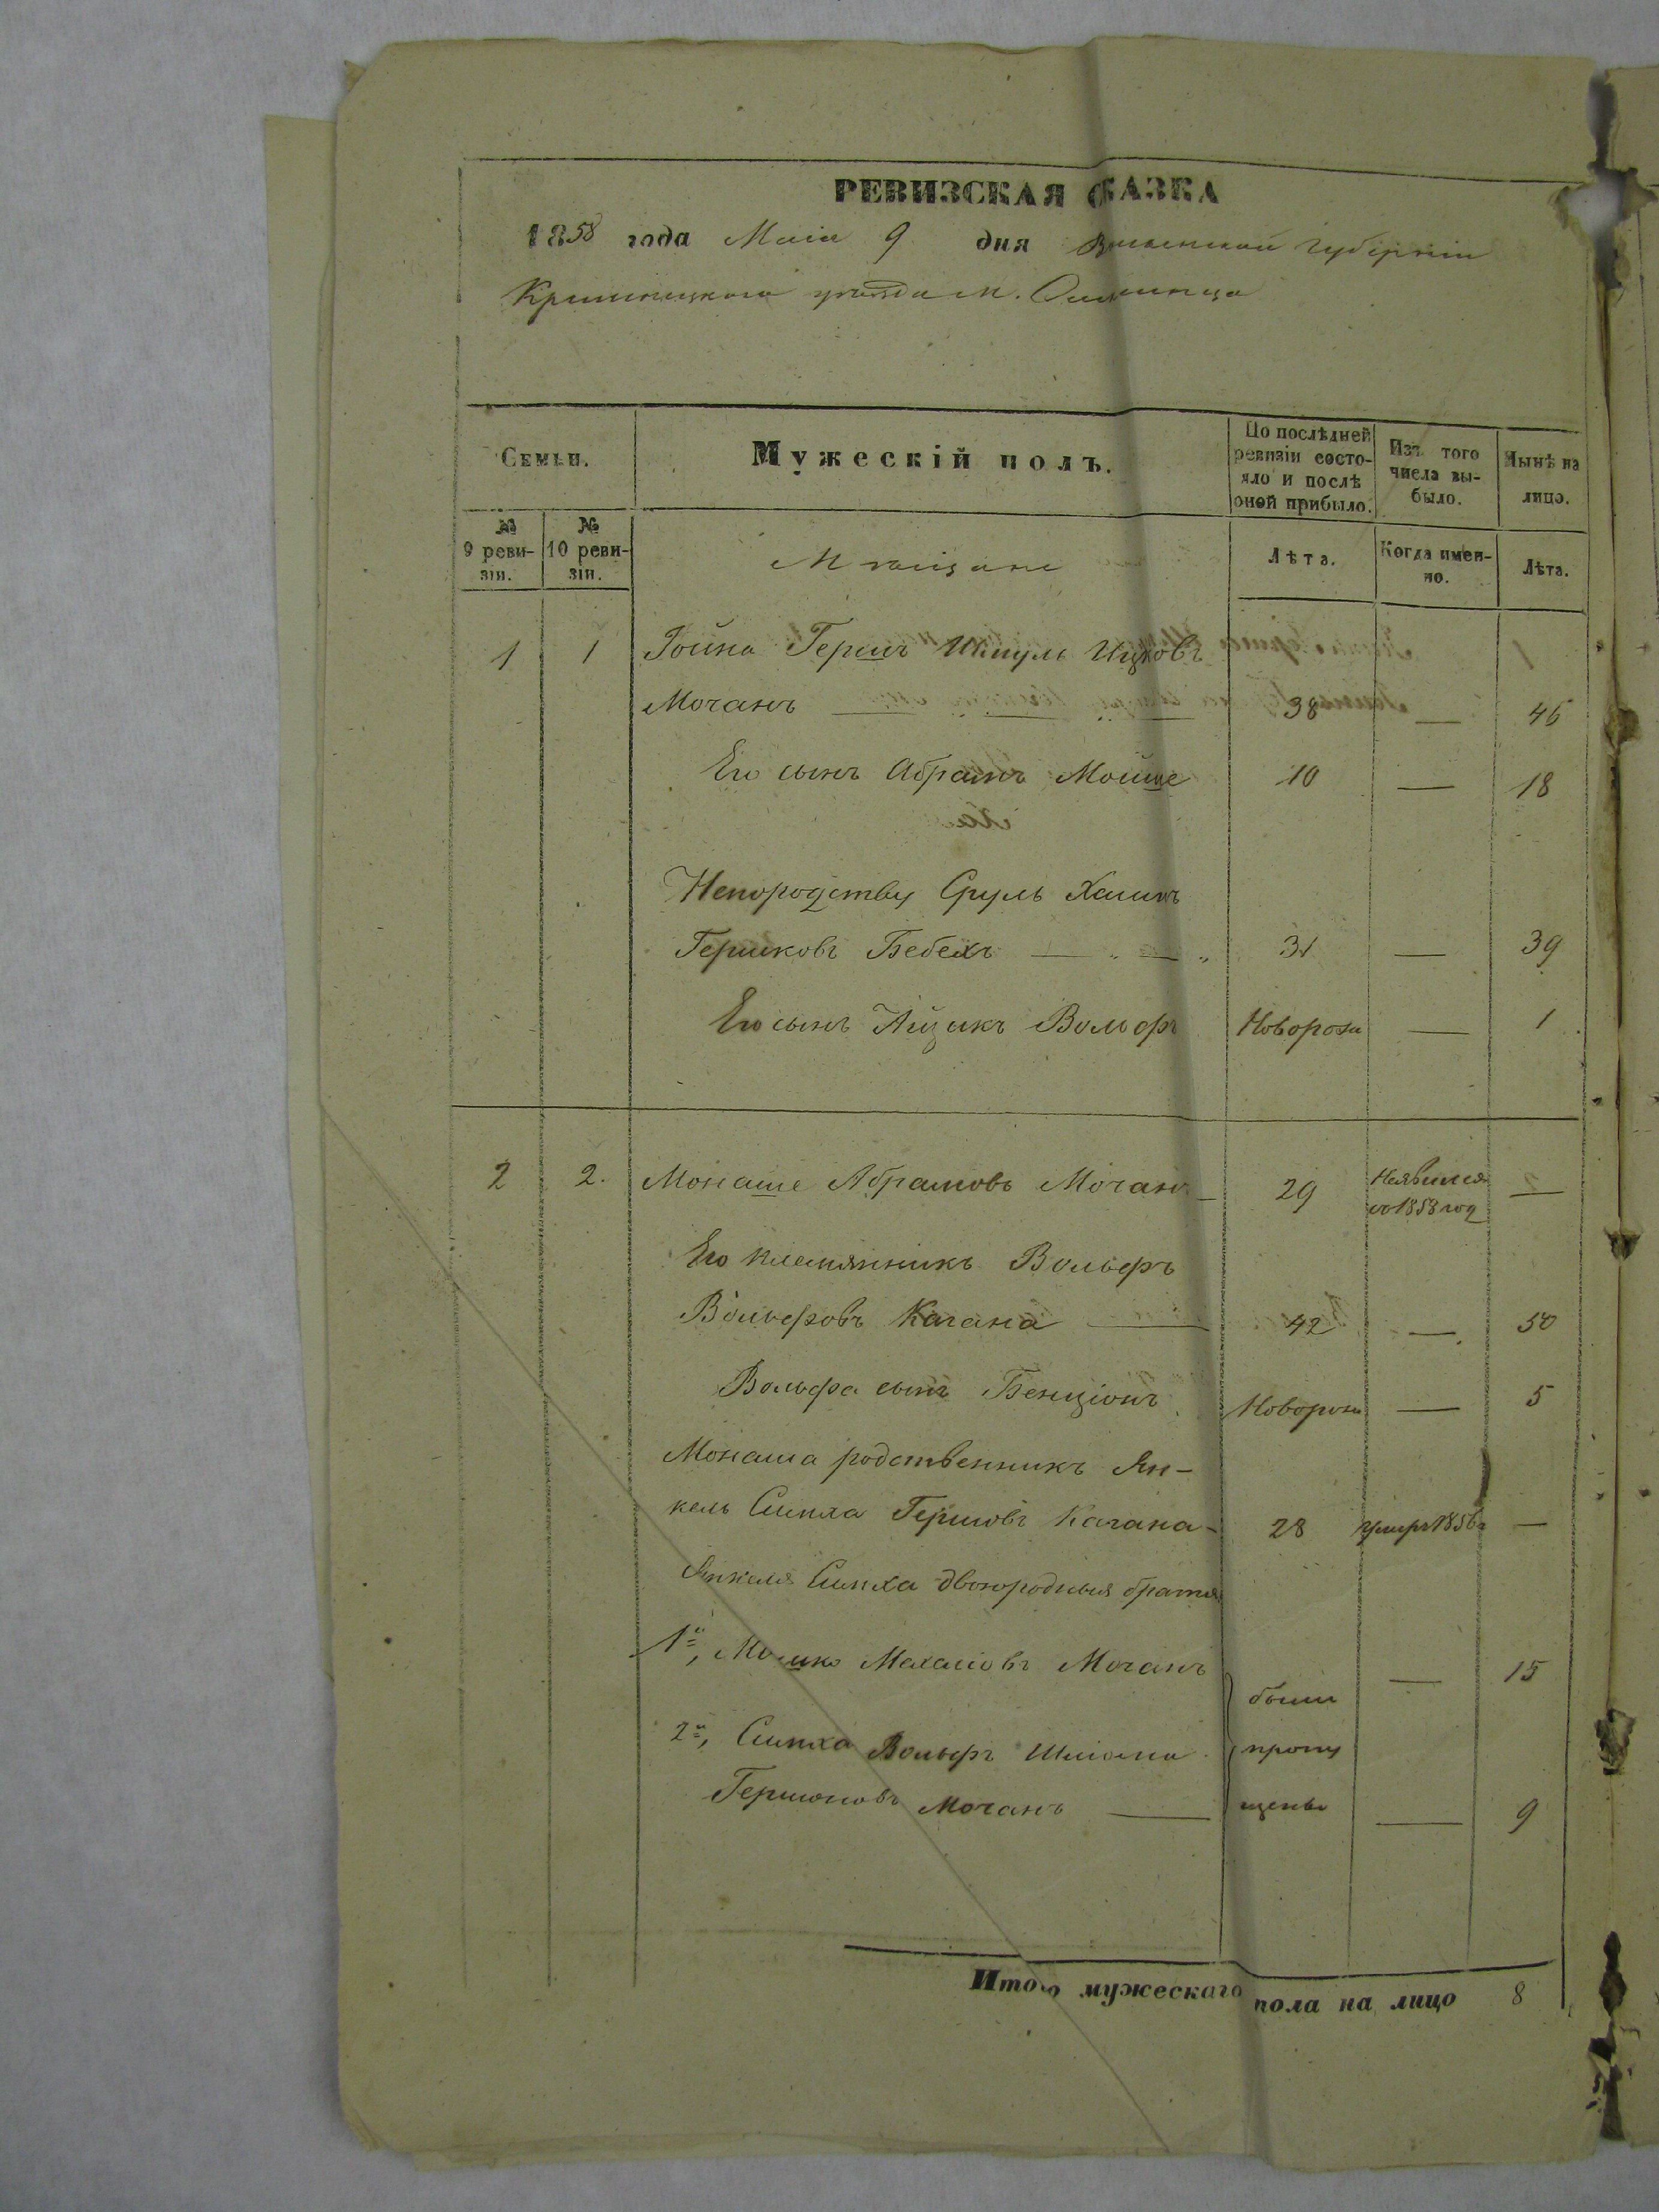 РЕВИЗСКАЯ СКАЗКА
1858 года Маія 9 дня Волынской губерніи
Кременецкаго уѣзда м.
Семьи.
Мужескій полъ.
По послѣдней ревизіи состояло и послѣ оной прибыло.
Изъ того числа выбыло.
Нынѣ на лицо.
№ 9 ревизіи.
№ 10 ревизіи.
Мѣщане
Лѣта.
Когда именно.
Лѣта.
1 1 Іойна Гершъ Шмуль Ицковъ
Мочанъ 38 — 46
Его сынъ Абрамъ Мойше 10 — 18
Непородству Сруль Хаимъ
Гершковъ Бебехъ 31 — 39
Его сынъ Айзикъ Вольфъ Новорож — 1
2 2. Монаше Абрамовъ Мочанъ 29 Неявился со 1853 год —
Его племянникъ Вольфъ
Вольфовъ Кагана 42 — 50
Вольфа сынъ Бенціонъ Новорож — 5
Монаша родственникъ Ян-
кель Симха Гершовъ Кагана 28 умеръ 1856 г —
Янкеля Симха двоюродныя братья
1й, Мошко Мочанъ — 15
были
2й, Симха Вольфъ Шліома пропу
Гершоновъ Мочанъ щены — 9
Итого мужескаго пола на лицо 8